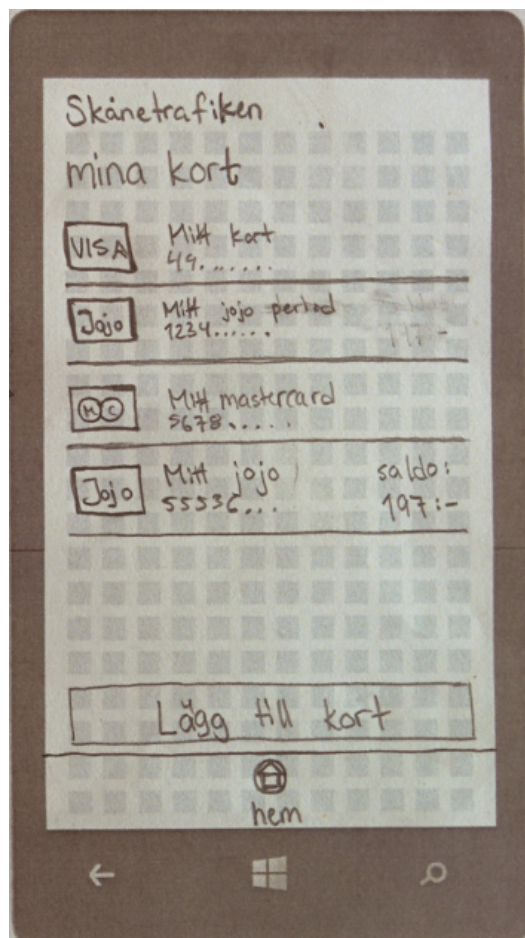 Skånetrafiken
mina kort
VISA
Mitt kort
49.......
Jojo
Mitt jojo period
1234......
saldo
197:-
MC
Mitt mastercard
5678.....
Jojo
Mitt jojo
55536...
saldo:
197:-
Lägg till kort
hem